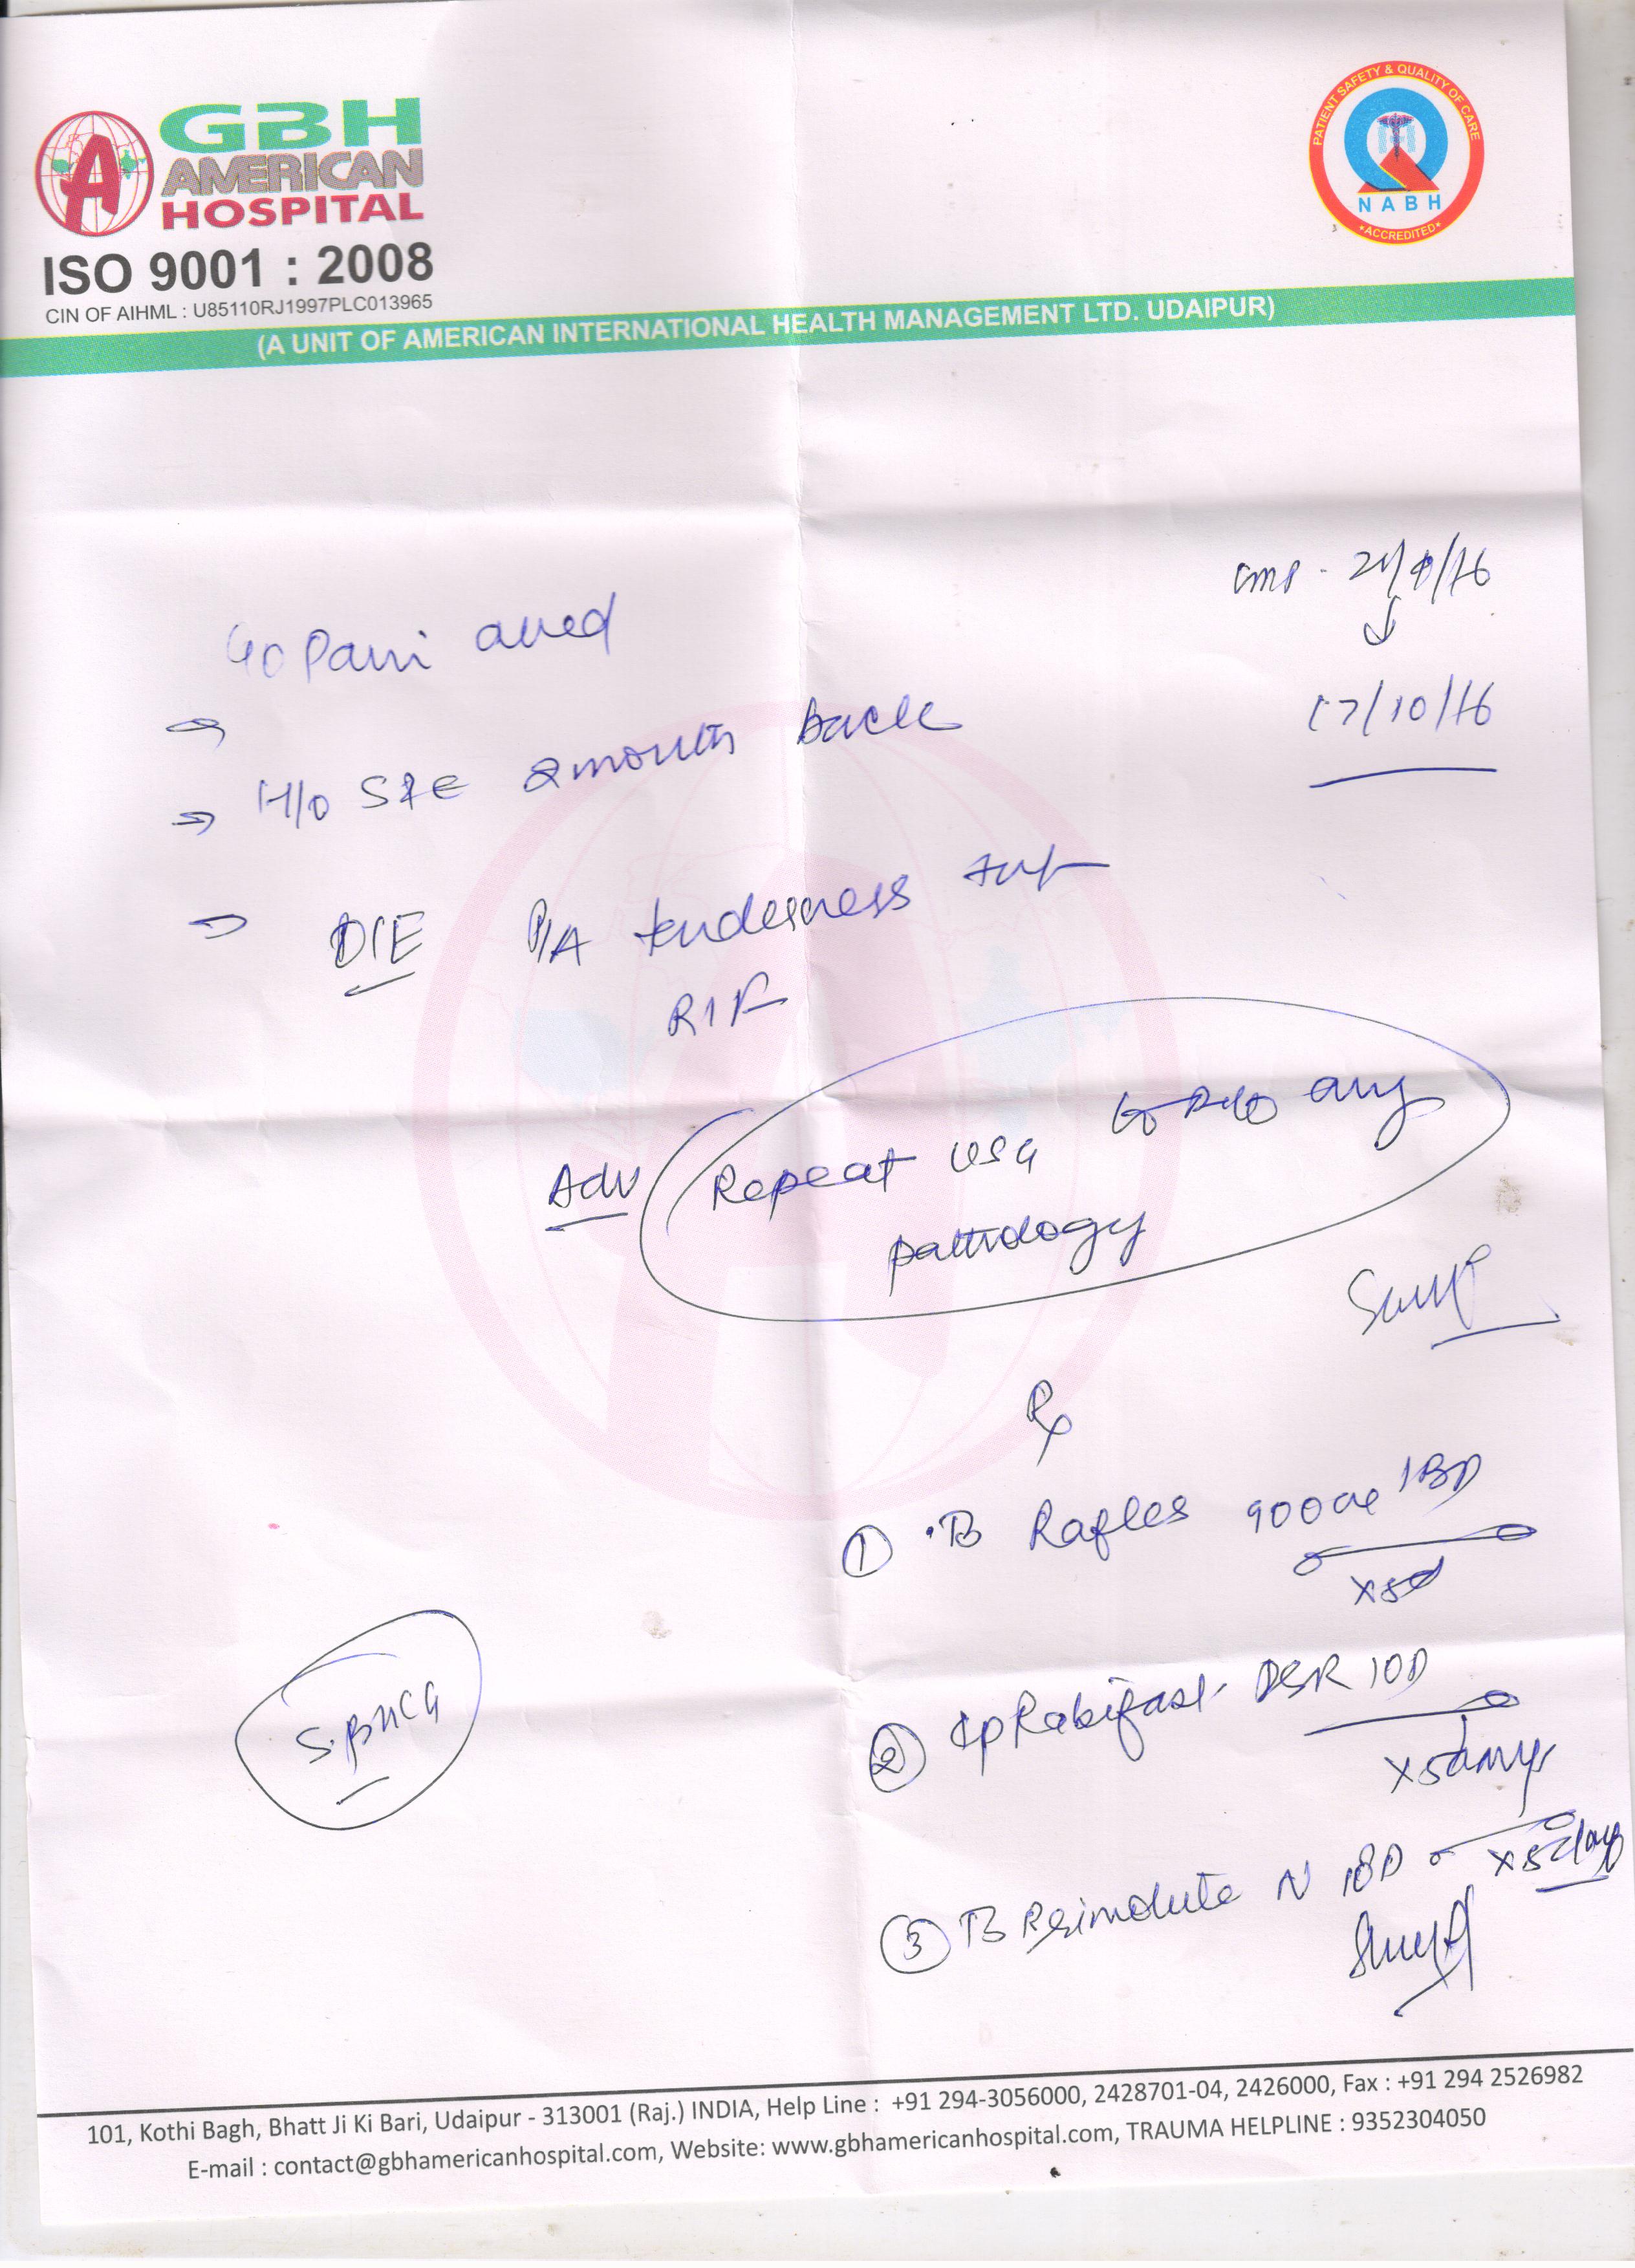 GBH
AMERICAN
HOSPITAL
ISO 9001 : 2008
CIN OF AIHML : U85110RJ1997PLC013965
PATIENT SAFETY & QUALITY OF CARE
NABH
ACCREDITED
(A UNIT OF AMERICAN INTERNATIONAL HEALTH MANAGEMENT LTD. UDAIPUR)
17/10/16
H/o S&E 2 month back
O/E P/A tenderness
RIF
Adv Repeat USG to R/o any
pathology
Rx
① Tb 1BD
x5d
② Cp Rabifast DSR 1OD
x5days
S. βHCG
③ Tb N 1BD x5days
101, Kothi Bagh, Bhatt Ji Ki Bari, Udaipur - 313001 (Raj.) INDIA, Help Line : +91 294-3056000, 2428701-04, 2426000, Fax : +91 294 2526982
E-mail : contact@gbhamericanhospital.com, Website: www.gbhamericanhospital.com, TRAUMA HELPLINE : 9352304050